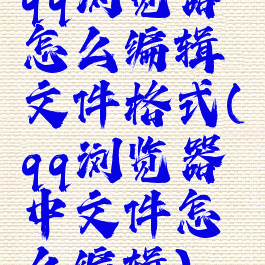 qq浏览器
怎么编辑
文件格式(
qq浏览器
中文件怎
么编辑)